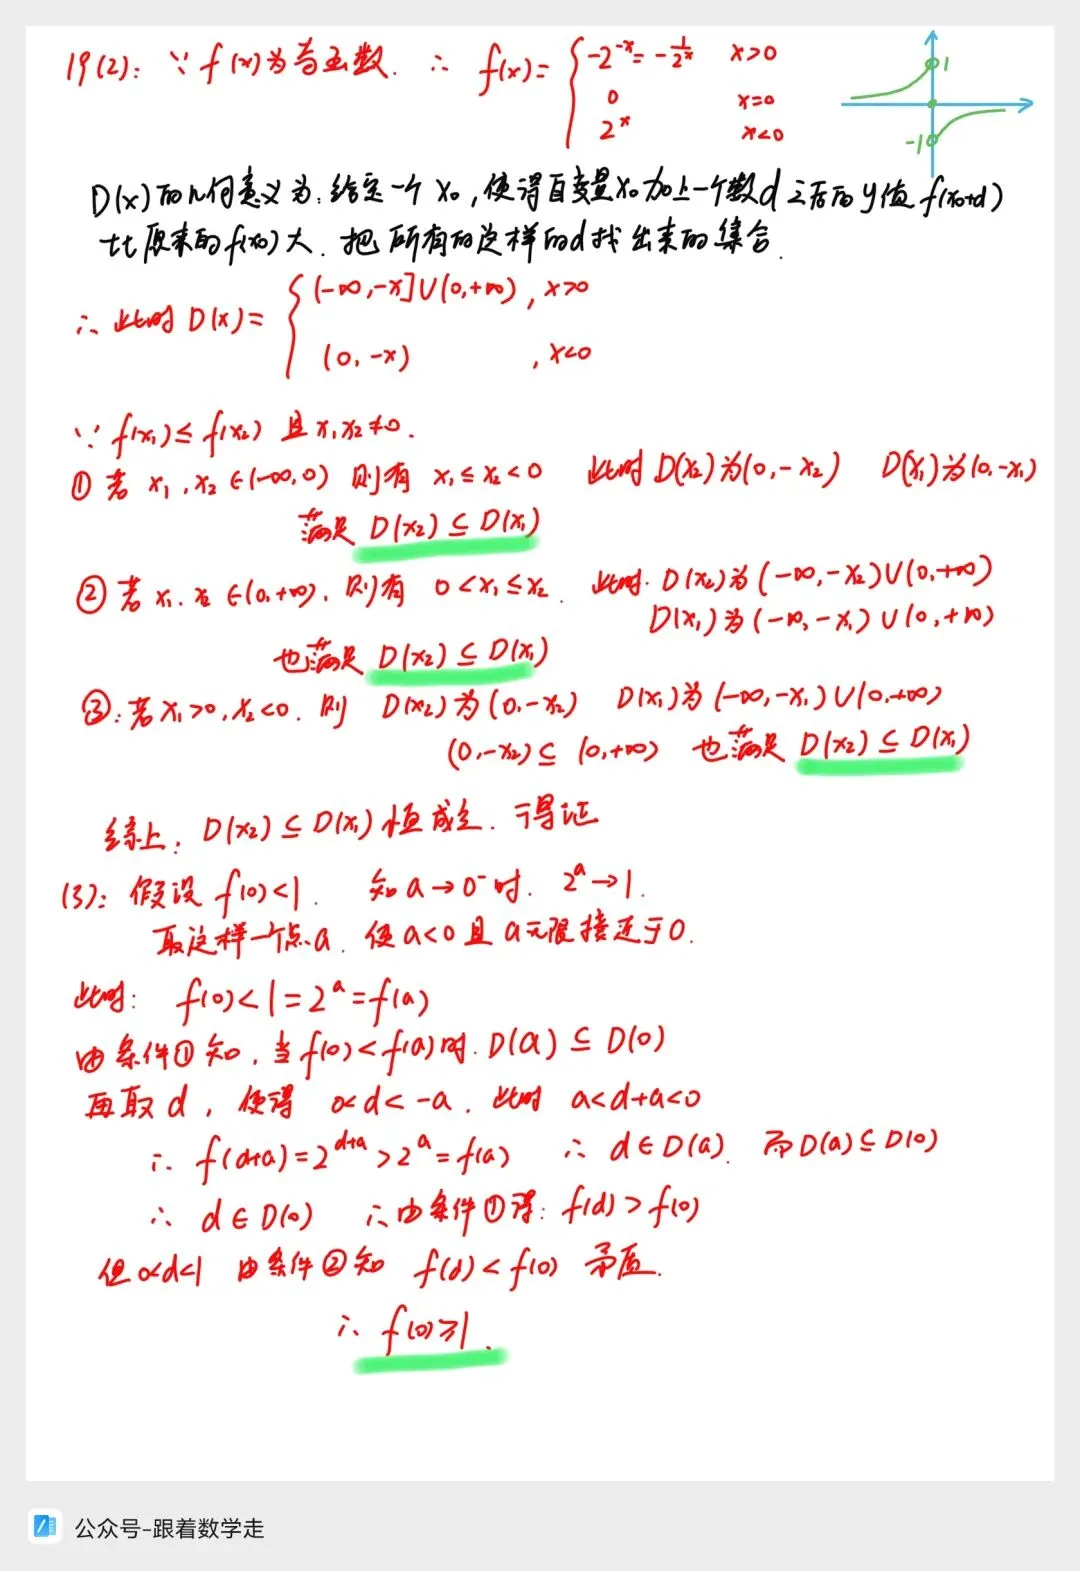 19(2): ∵ f(x)为奇函数. ∴ f(x)= { -2^{-x} = -1/2^x  x>0
0  x=0
2^x  x<0
1
-1
D(x)的几何意义为:给定一个x₀,使得自变量x₀加上一个数d之后的y值f(x₀+d)
比原来的f(x₀)大.把所有的这样的d找出来的集合.
∴ 此时D(x)= { (-∞,-x]∪(0,+∞), x>0
(0,-x)  ,x<0
∵ f(x₁)≤f(x₂) 且x₁x₂≠0.
① 若 x₁,x₂∈(-∞,0) 则有 x₁≤x₂<0  此时D(x₂)为(0,-x₂)  D(x₁)为(0,-x₁)
满足 D(x₂)⊆D(x₁)
② 若 x₁.x₂∈(0,+∞),则有 0<x₁≤x₂.  此时.D(x₂)为(-∞,-x₂)∪(0,+∞)
D(x₁)为(-∞,-x₁)∪(0,+∞)
也满足 D(x₂)⊆D(x₁)
③:若x₁>0,x₂<0.则  D(x₂)为(0,-x₂)  D(x₁)为(-∞,-x₁)∪(0,+∞)
(0,-x₂)⊆(0,+∞)  也满足 D(x₂)⊆D(x₁)
综上,D(x₂)⊆D(x₁)恒成立.得证
(3): 假设 f(0)<1.  知a→0⁻时.  2^a→1.
取这样一个点a.使a<0且a无限接近于0.
此时: f(0)<1=2^a=f(a)
由条件①知,当f(0)<f(a)时.D(a)⊆D(0)
再取d,使得 0<d<-a.此时 a<d+a<0
∴ f(d+a)=2^{d+a}>2^a=f(a)  ∴ d∈D(a).  而D(a)⊆D(0)
∴ d∈D(0)  ∴由条件①得: f(d)>f(0)
但0<d<1  由条件②知  f(d)<f(0) 矛盾.
∴ f(0)≥1.
公众号-跟着数学走